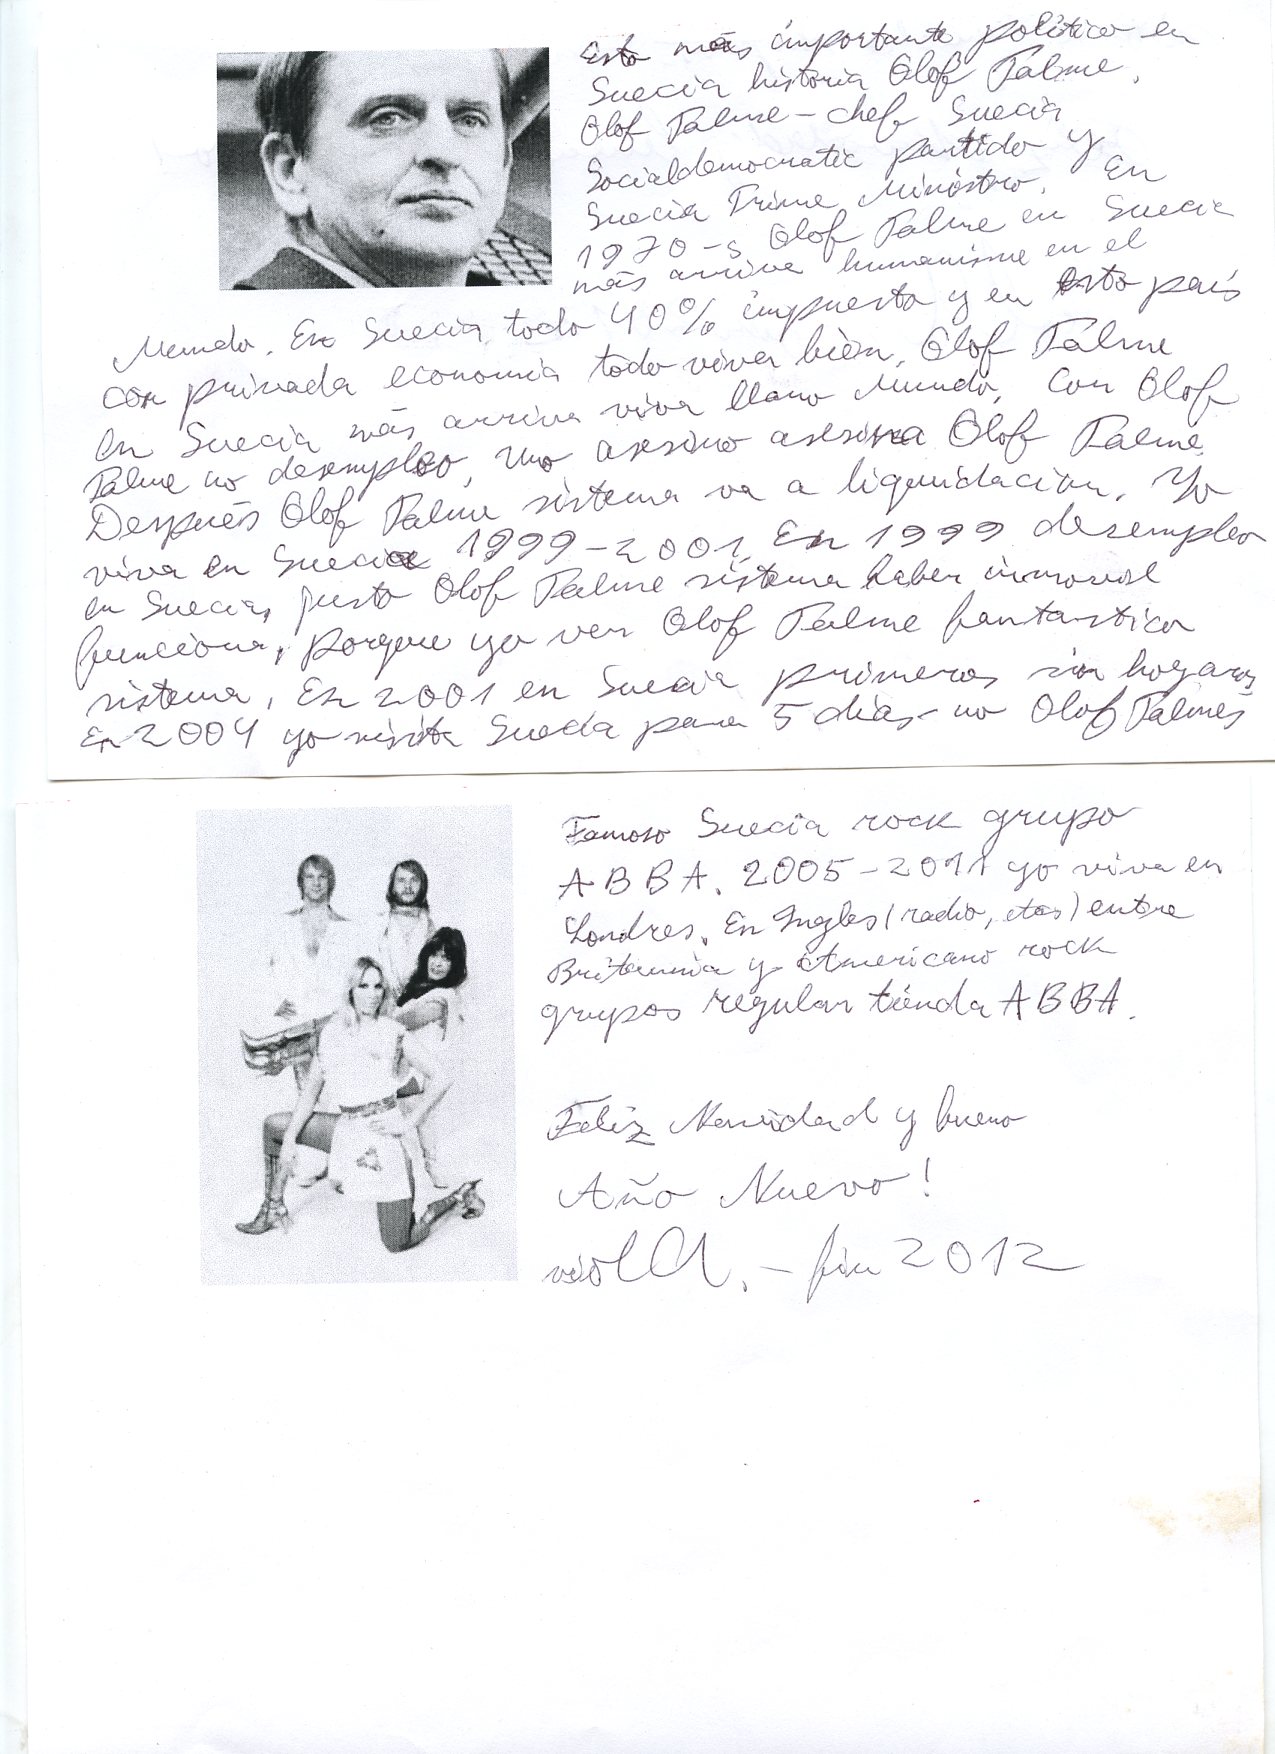 Esto más importante político en
Suecia historia Olof Palme.
Olof Palme - chef Suecia
Socialdemocratic partido y
Suecia Prime Ministro. En
1970-s Olof Palme en Suecia
más arriva humanisme en el
Mundo. En Suecia todo 40% impuesto y en esto país
con privada economia todo viva bien. Olof Palme
en Suecia más arriva viva llano Mundo. Con Olof
Palme no desempleo, uno asesino asesina Olof Palme.
Después Olof Palme sistema va a liquidacion. Yo
viva en Suecia 1999-2001. En 1999 desempleo
en Suecia, justo Olof Palme sistema haber inmovil
funciona, porque yo ver Olof Palme fantastico
sistema. En 2001 en Suecia primeros sin hogares
En 2004 yo visita Suecia para 5 dias - no Olof Palmes
Famoso Suecia rock grupo
ABBA. 2005-2011 yo viva en
Londres. En Ingles (radio, etas) entre
Britannia y Americano rock
grupos regular tienda ABBA.
Feliz Navidad y bueno
Año Nuevo!
- fin 2012